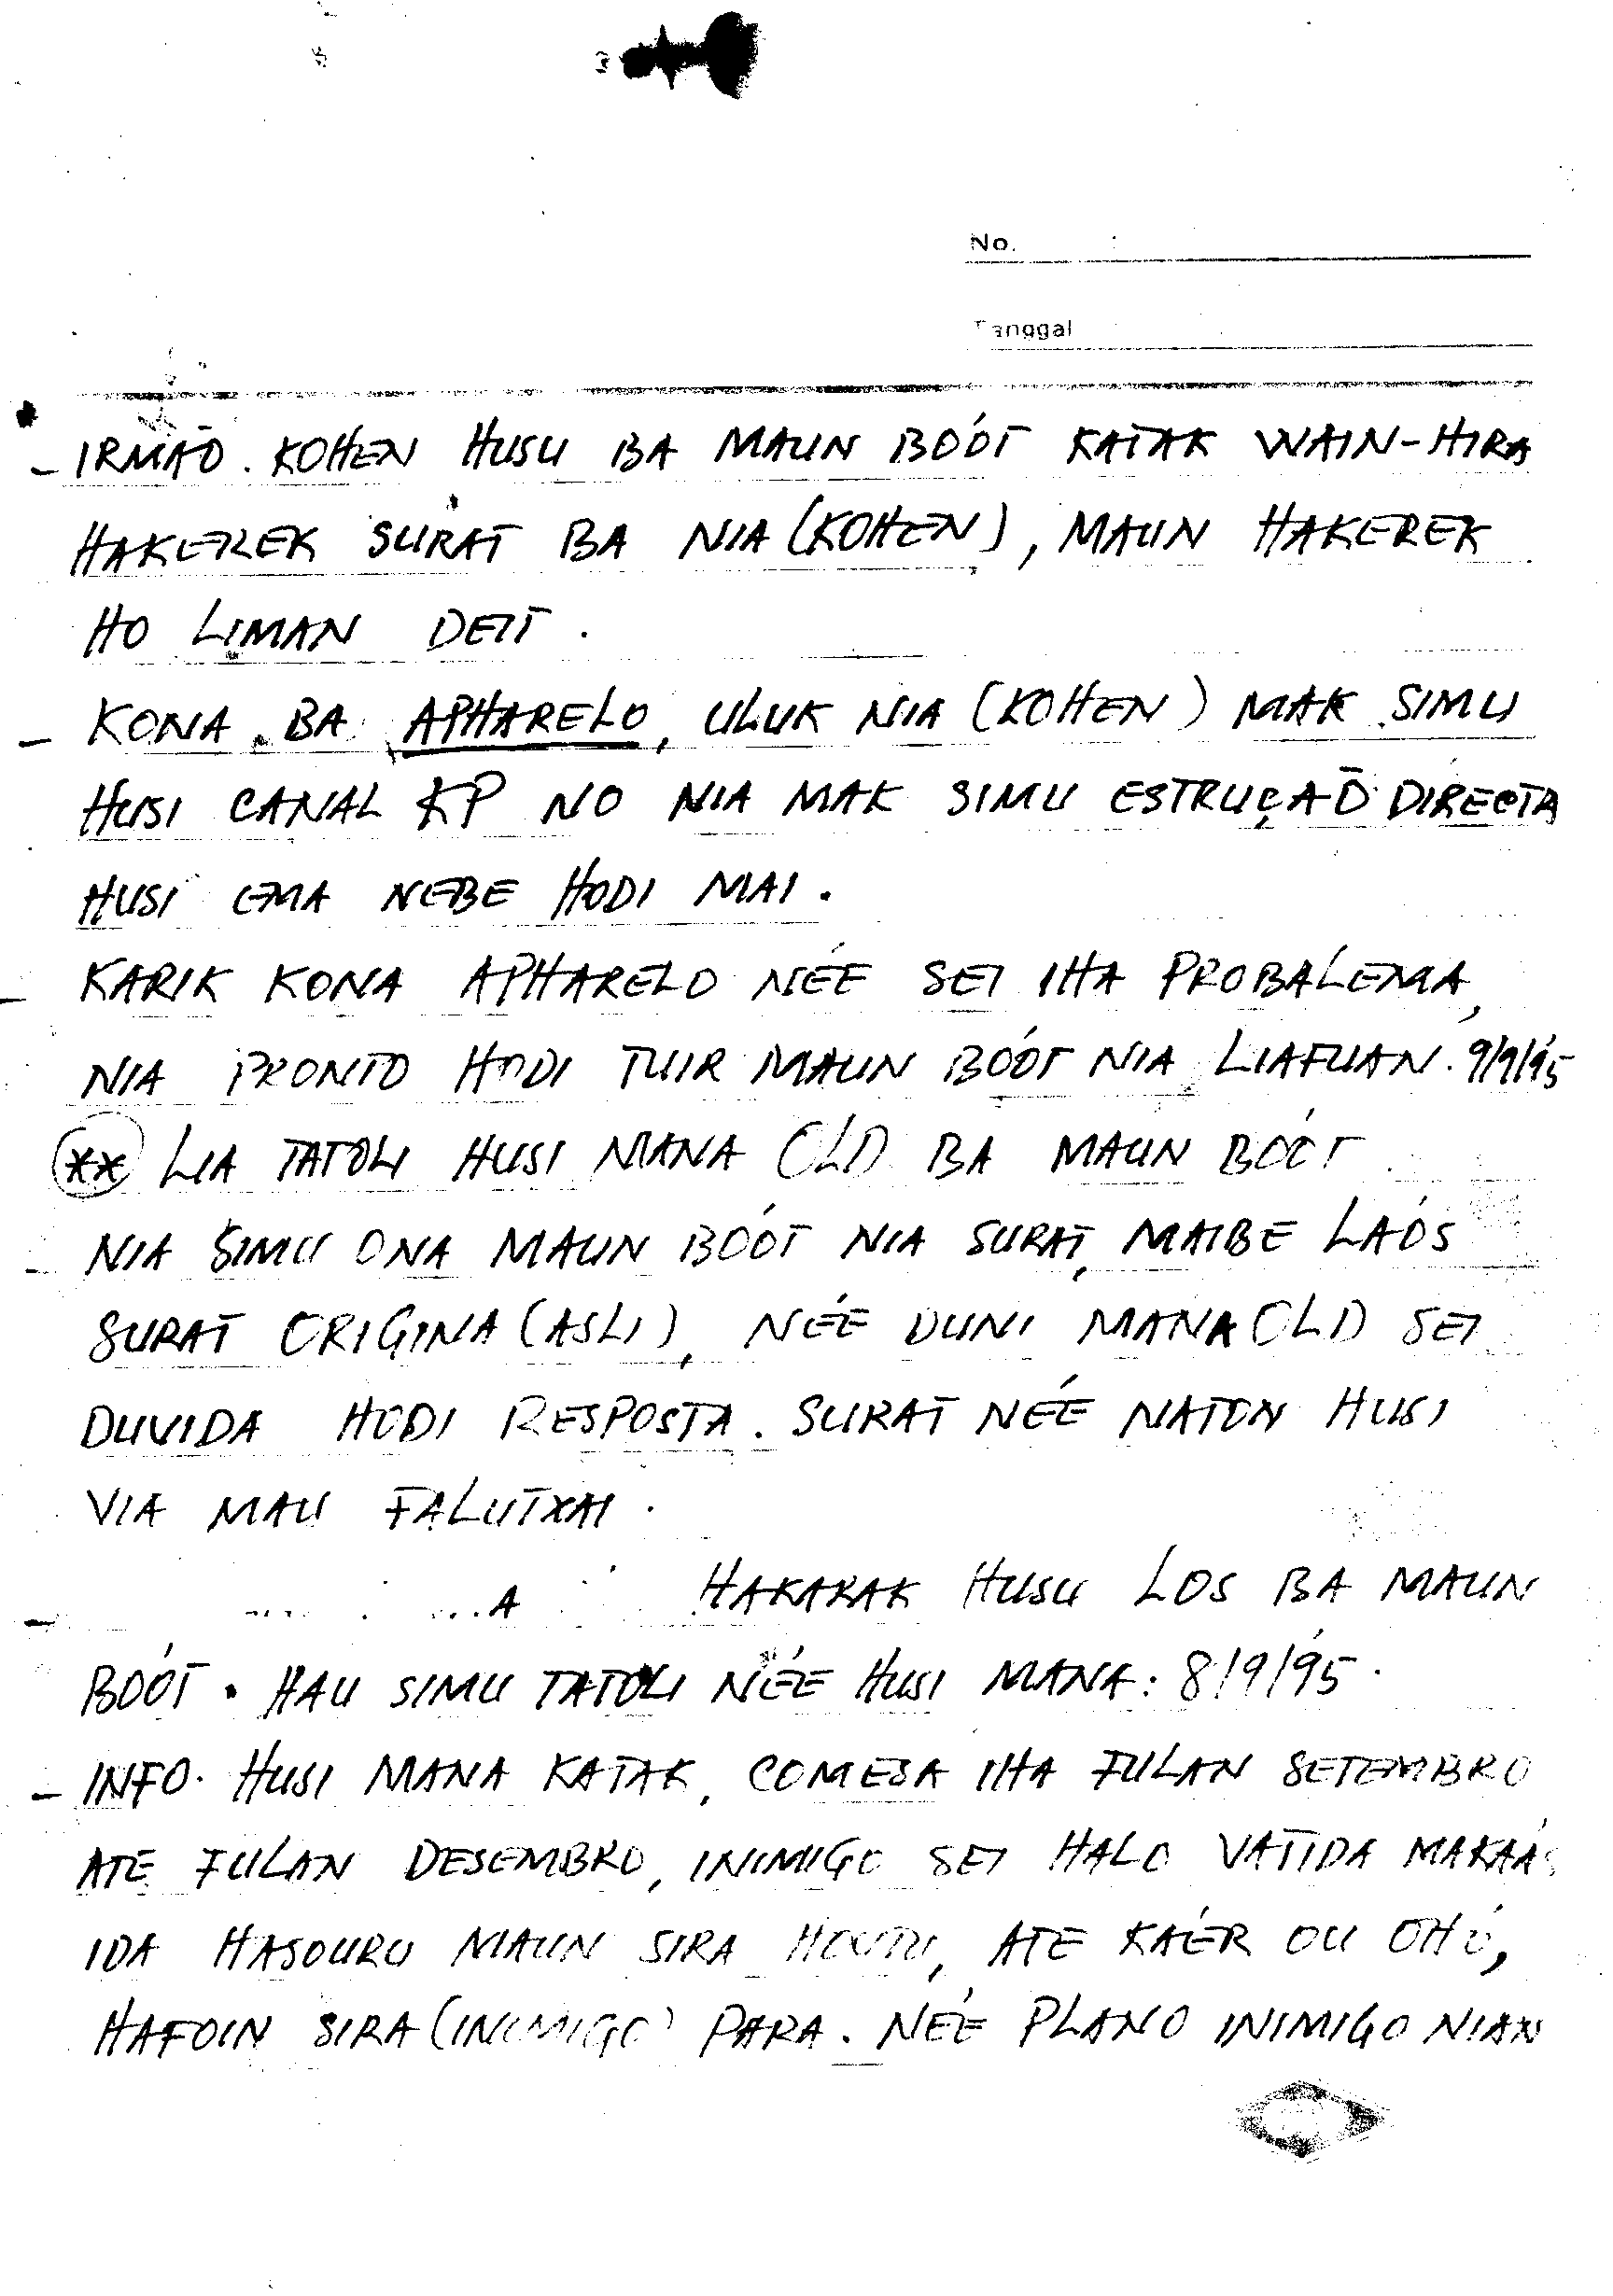 No. :
Tanggal :
- IRMAÕ. KOHEN HUSU BA MAUN BOÓT KATAK WAIN-HIRA
HAKEREK SURAT BA NIA (KOHEN), MAUN HAKEREK
HO LIMAN DEIT.
- KONA BA APHARELO, ULUK NIA (KOHEN) MAK SIMU
HUSI CANAL KP NO NIA MAK SIMU ESTRUÇAÕ DIRECTA
HUSI EMA NEBE HODI MAI.
- KARIK KONA APHARELO NÉE SEI IHA PROBALEMA,
NIA PRONTO HODI TUIR MAUN BOÓT NIA LIAFUAN. 9/9/95
(XX) LIA TATOLI HUSI MANA OLD BA MAUN BOÓT
- NIA SIMU ONA MAUN BOÓT NIA SURAT, MAIBE LAÓS
SURAT ORIGINA (ASLI), NÉE DUNI MANA OLD SEI
DUVIDA HODI RESPOSTA. SURAT NÉE NATON HUSI
VIA MAU FALUTXAI.
- A HAKARAK HUSU LOS BA MAUN
BOÓT. HAU SIMU TATOLI NÉE HUSI MANA: 8/9/95.
- INFO. HUSI MANA KATAK, COMESA IHA FULAN SETEMBRO
ATE FULAN DESEMBRO, INIMIGO SEI HALO VATIDA MAKAÁS
IDA HASOURU MAUN SIRA HOUTU, ATE KAÉR OU OHÓ,
HAFOIN SIRA (INIMIGO) PARA. NÉE PLANO INIMIGO NIAN